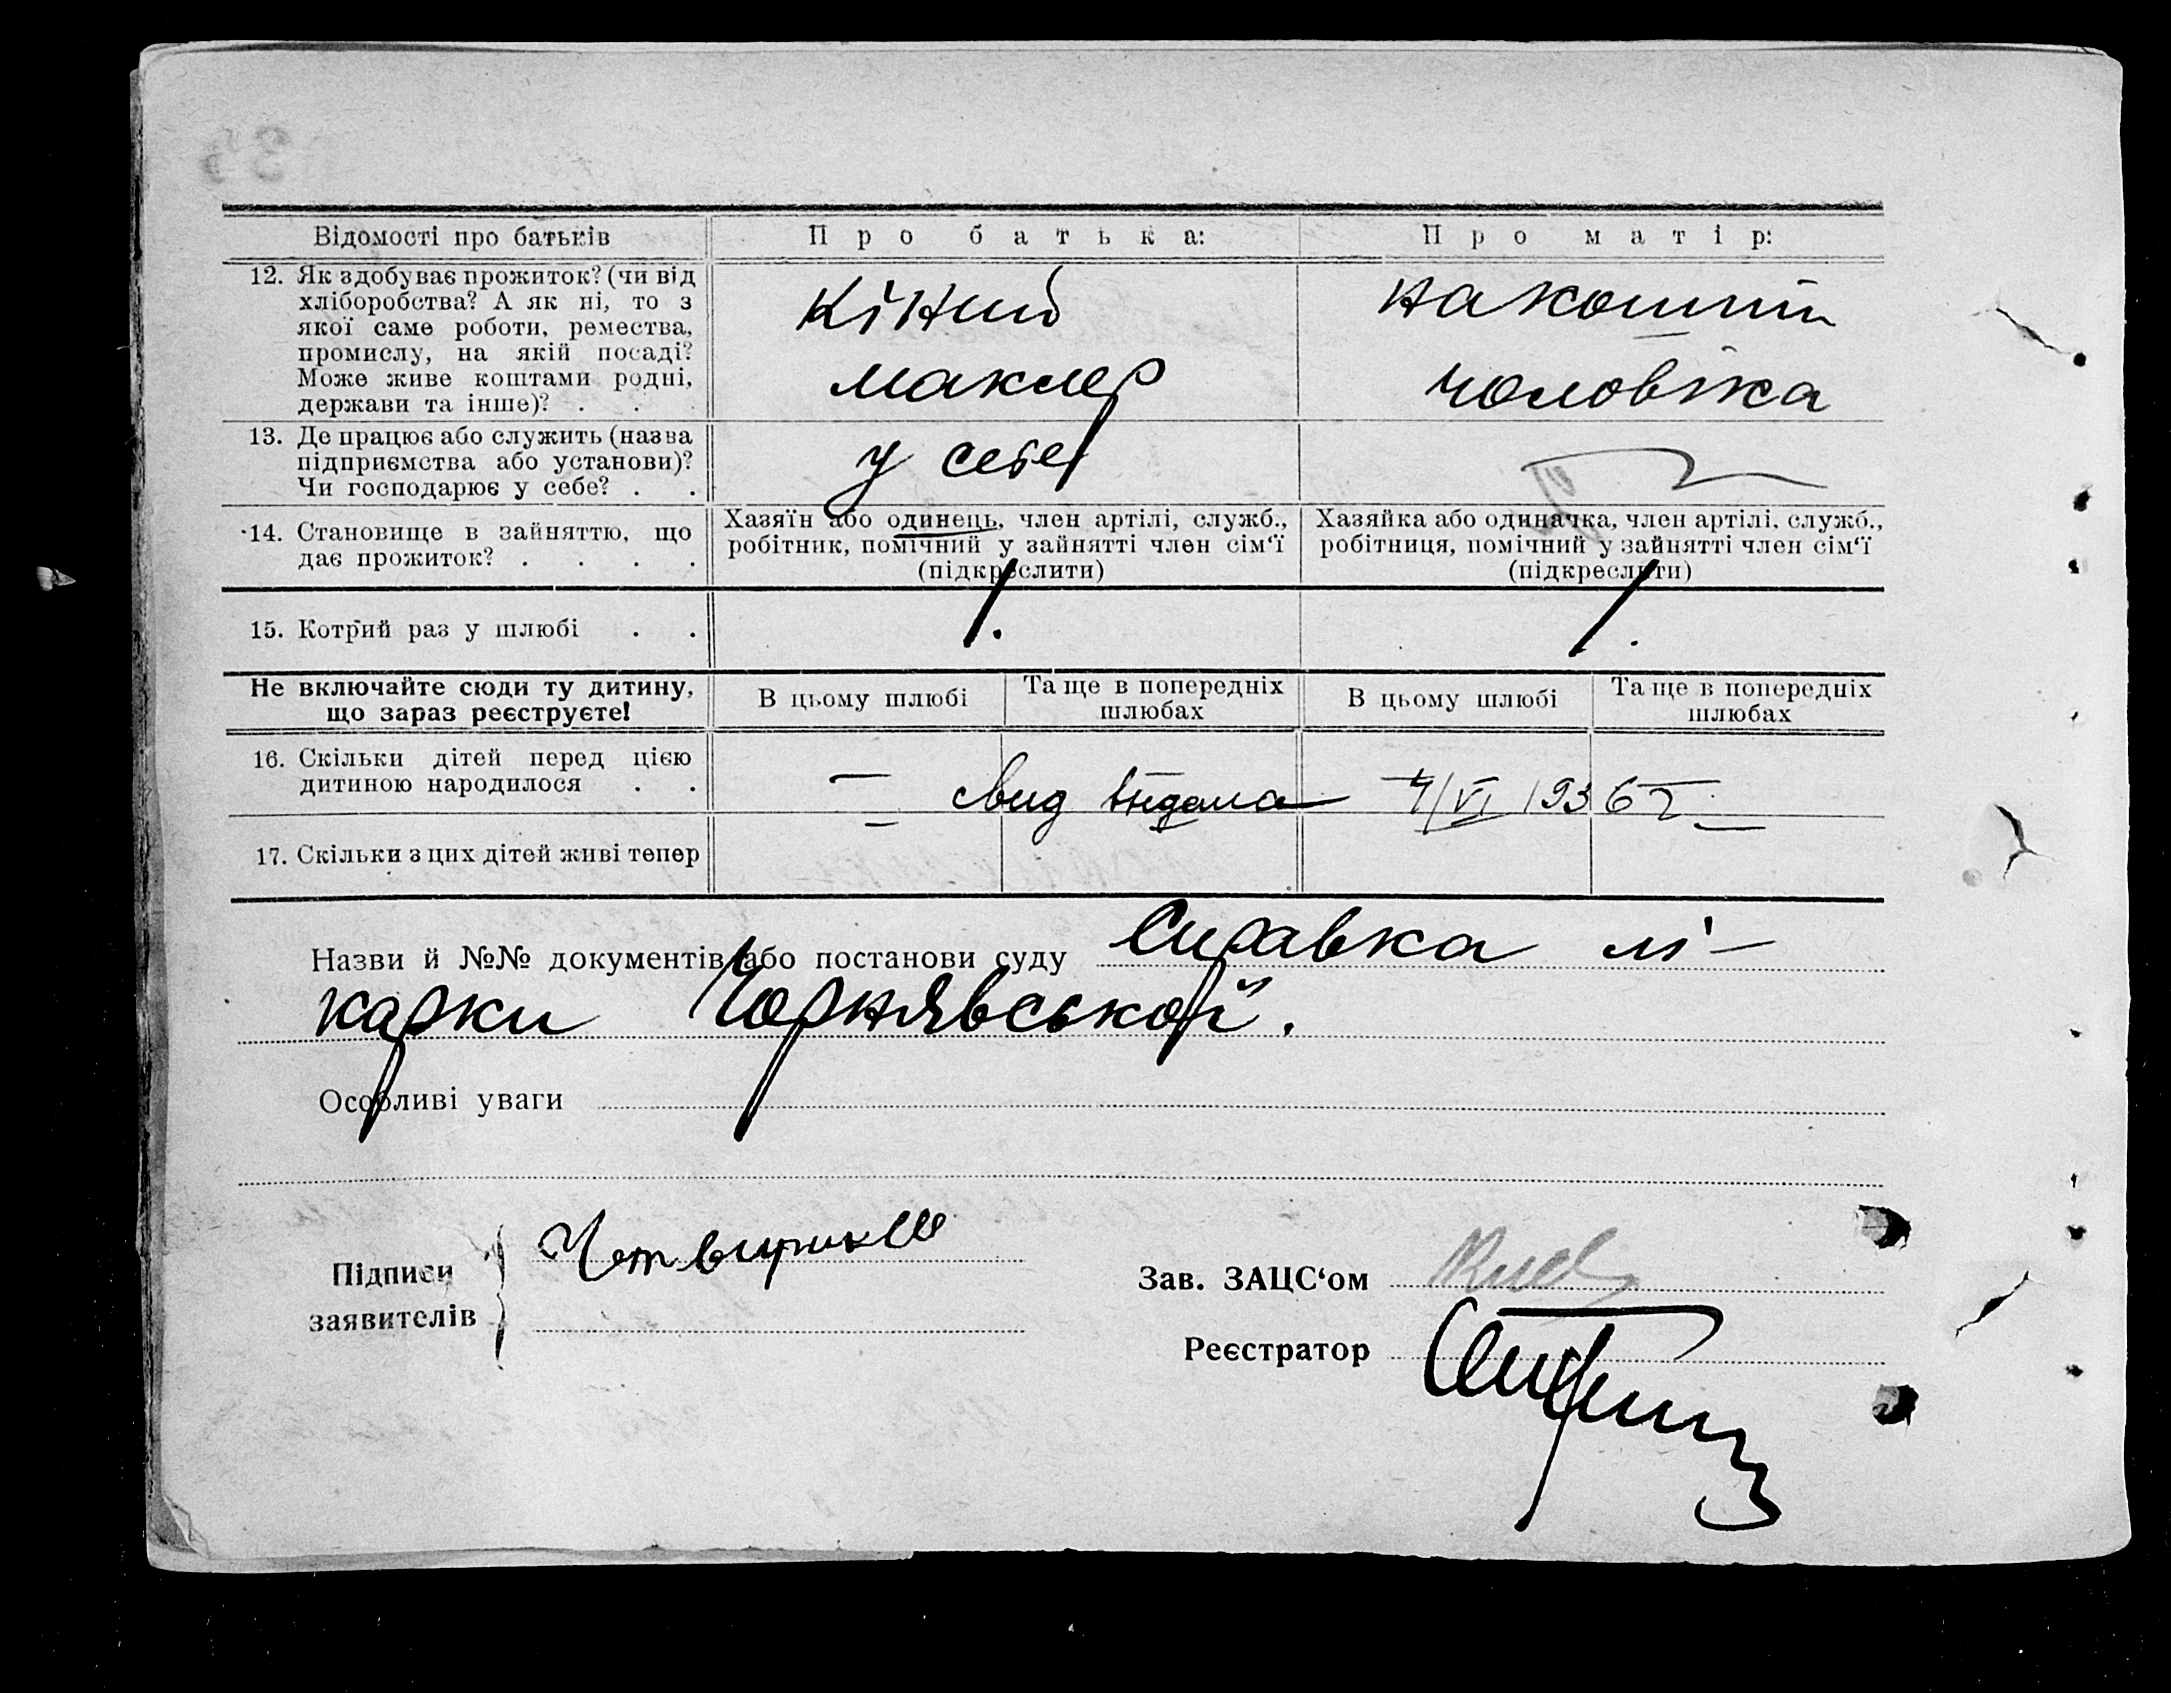 Відомості про батьків
Про батька:
Про матір:
12. Як здобуває прожиток? (чи від
хліборобства? А як ні, то з
якої саме роботи, ремества,
промислу, на якій посаді?
Може живе коштами родні,
держави та інше)? . .
Кінний
маклер
на кошти
чоловіка
13. Де працює або служить (назва
підприємства або установи)?
Чи господарює у себе? . .
у себе
14. Становище в зайняттю, що
дає прожиток? . . . .
Хазяїн або одинець, член артілі, служб.,
робітник, помічний у зайнятті член сім‘ї
(підкреслити)
Хазяйка або одиначка, член артілі, служб.,
робітниця, помічний у зайнятті член сім‘ї
(підкреслити)
15. Котрий раз у шлюбі . .
1.
1.
Не включайте сюди ту дитину,
що зараз реєструєте!
В цьому шлюбі
Та ще в попередніх
шлюбах
В цьому шлюбі
Та ще в попередніх
шлюбах
16. Скільки дітей перед цією
дитиною народилося . .
— свид видана 4/VI 1936 г
17. Скільки з цих дітей живі тепер
Назви й №№ документів або постанови суду Справка лі-
карки Чорнявської.
Особливі уваги
Підписи
заявителів
Зав. ЗАЦС‘ом
Реєстратор